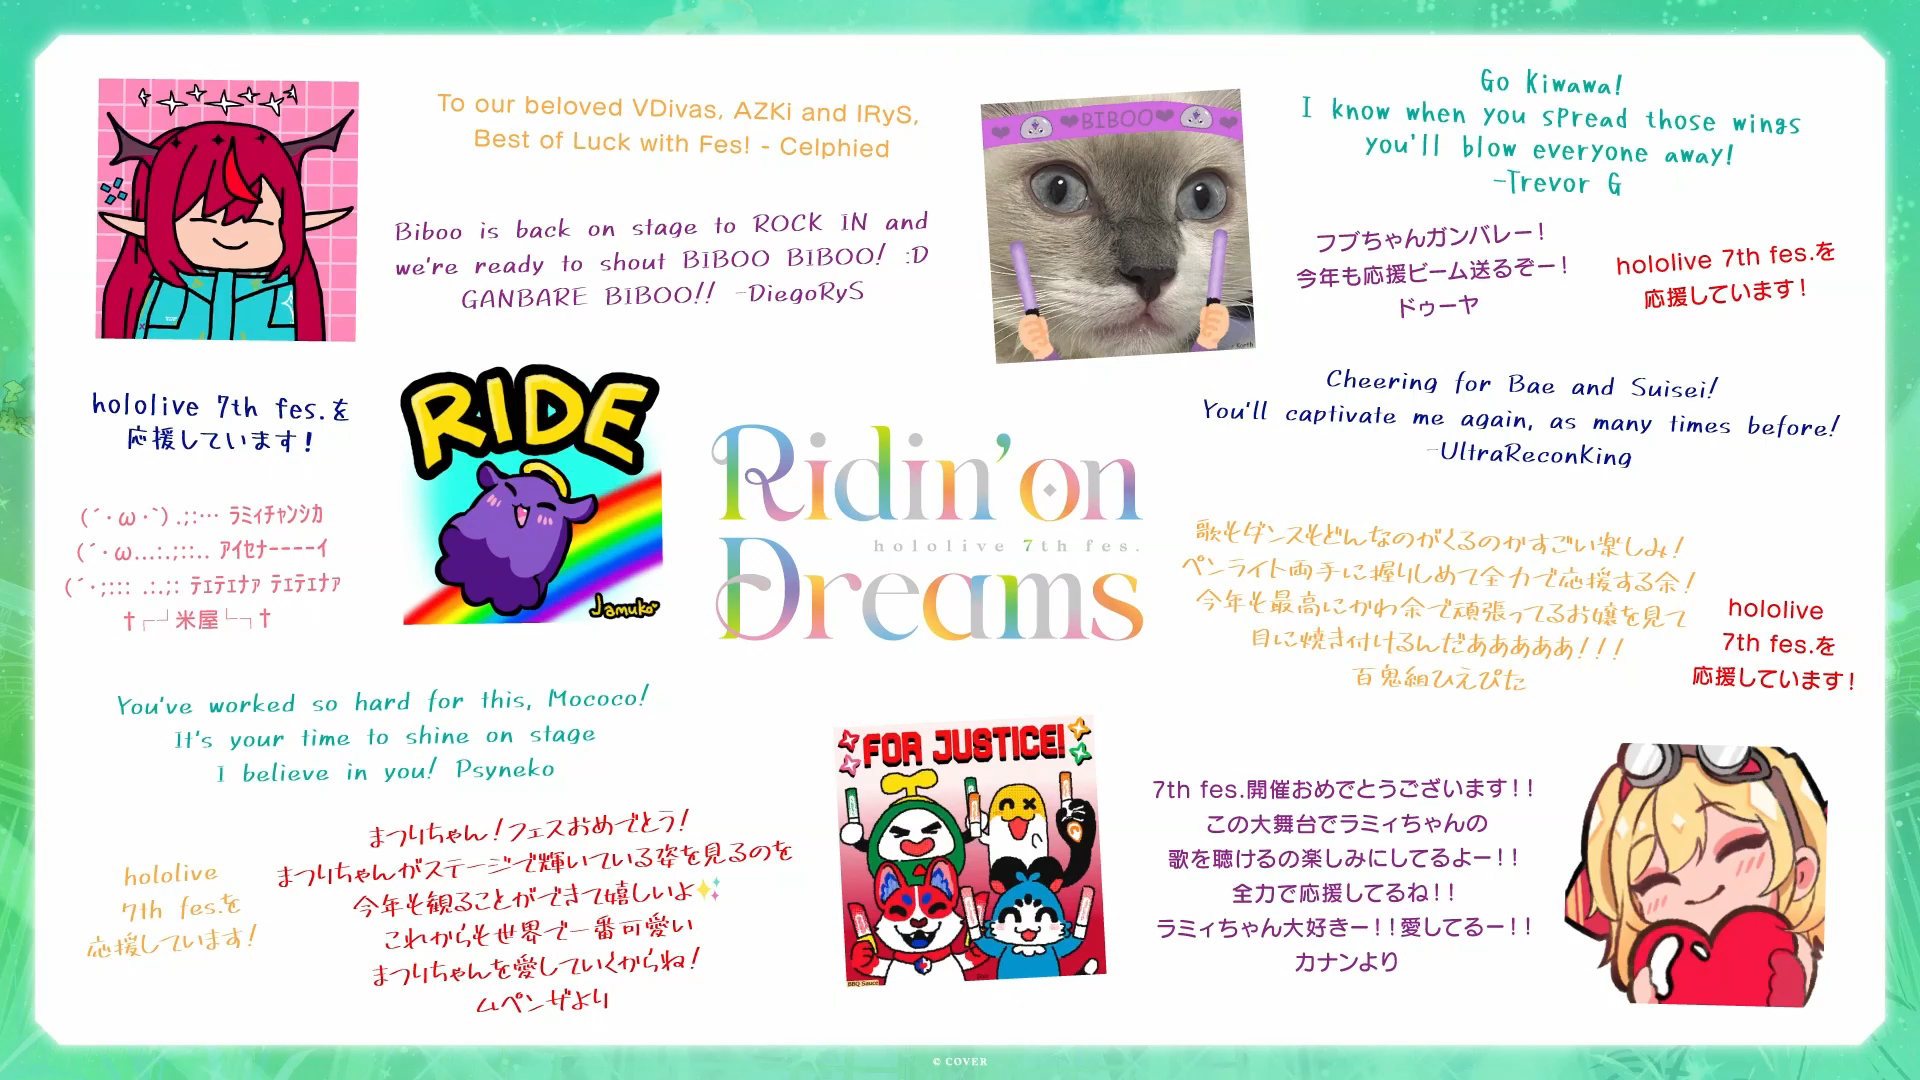 To our beloved VDivas, AZKi and IRyS,
Best of Luck with Fes! - Celphied
Biboo is back on stage to ROCK IN and
we're ready to shout BIBOO BIBOO! :D
GANBARE BIBOO!! -DiegoRyS
❤ ❤BIBOO❤ ❤
Go Kiwawa!
I know when you spread those wings
you'll blow everyone away!
-Trevor G
フブちゃんガンバレー！
今年も応援ビーム送るぞー！
ドゥーヤ
hololive 7th fes.を
応援しています！
hololive 7th fes.を
応援しています！
RIDE
Jamuko
Ridin' on
hololive 7th fes.
Dreams
Cheering for Bae and Suisei!
You'll captivate me again, as many times before!
-UltraReconKing
(´・ω・`) .;:… ﾗﾐｨﾁｬﾝｼｶ
(´・ω...:.;::.. ｱｲｾﾅｰｰｰｰｲ
(´・;::: .:.;: ﾃｪﾃｪﾅｧ ﾃｪﾃｪﾅｧ
†┌┘米屋└┐†
歌もダンスもどんなのがくるのかすごい楽しみ！
ペンライト両手に握りしめて全力で応援する余！
今年も最高にかわ余で頑張ってるお嬢を見て
目に焼き付けるんだあああああ！！！
百鬼組ひえぴた
hololive
7th fes.を
応援しています！
You've worked so hard for this, Mococo!
It's your time to shine on stage
I believe in you! Psyneko
hololive
7th fes.を
応援しています！
まつりちゃん！フェスおめでとう！
まつりちゃんがステージで輝いている姿を見るのを
今年も観ることができて嬉しいよ✨
これからも世界で一番可愛い
まつりちゃんを愛していくからね！
ムペンザより
FOR JUSTICE!
BBQ Sauce
7th fes.開催おめでとうございます！！
この大舞台でラミィちゃんの
歌を聴けるの楽しみにしてるよー！！
全力で応援してるね！！
ラミィちゃん大好きー！！愛してるー！！
カナンより
© COVER